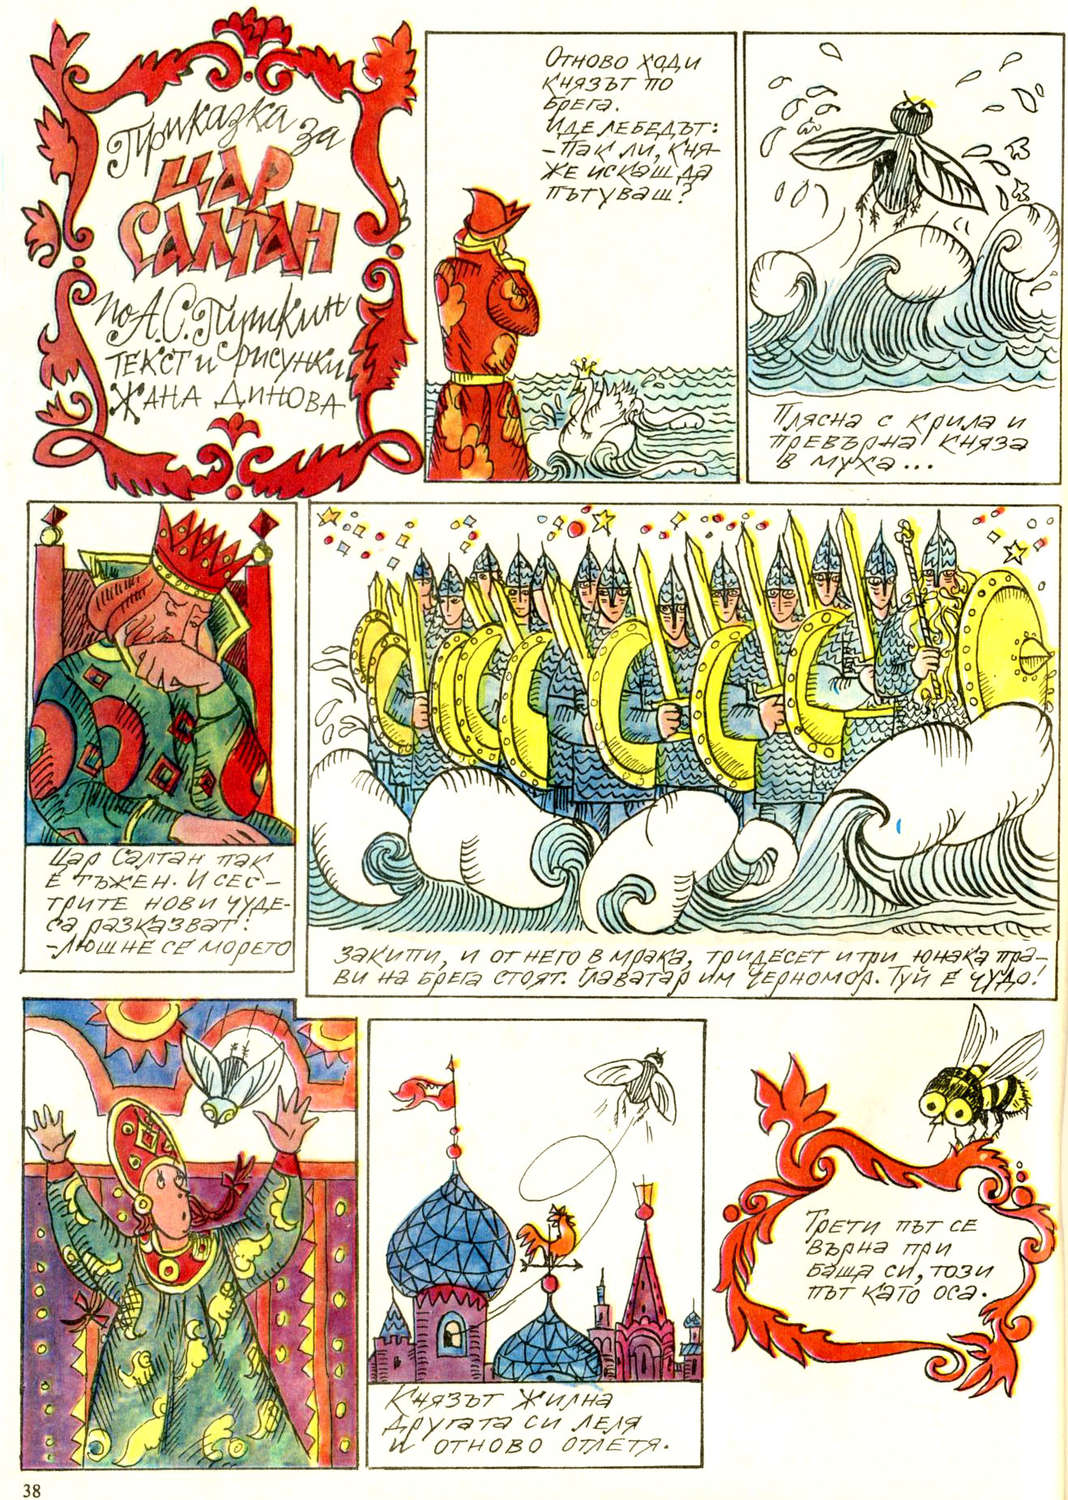 Приказка за
ЦАР
САЛТАН
по А.С.Пушкин
ТЕКСТ И РИСУНКИ
ЖАНА ДИНОВА
ОТНОВО ХОДИ
КНЯЗЪТ ПО
БРЕГА.
ИДЕ ЛЕБЕДЪТ:
- ПАК ЛИ, КНЯ-
ЖЕ ИСКАШ ДА
ПЪТУВАШ?
ПЛЯСНА С КРИЛА И
ПРЕВЪРНА КНЯЗА
В МУХА...
ЦАР САЛТАН ПАК
Е ТЪЖЕН. И СЕС-
ТРИТЕ НОВИ ЧУДЕ-
СА РАЗКАЗВАТ:
- ЛЮШНЕ СЕ МОРЕТО
ЗАКИПИ, И ОТ НЕГО В МРАКА, ТРИДЕСЕТ И ТРИ ЮНАКА ПРА-
ВИ НА БРЕГА СТОЯТ. ГЛАВАТАР ИМ ЧЕРНОМОР. ТУЙ Е ЧУДО!
КНЯЗЪТ ЖИЛНА
ДРУГАТА СИ ЛЕЛЯ
И ОТНОВО ОТЛЕТЯ.
ТРЕТИ ПЪТ СЕ
ВЪРНА ПРИ
БАЩА СИ, ТОЗИ
ПЪТ КАТО ОСА.
38